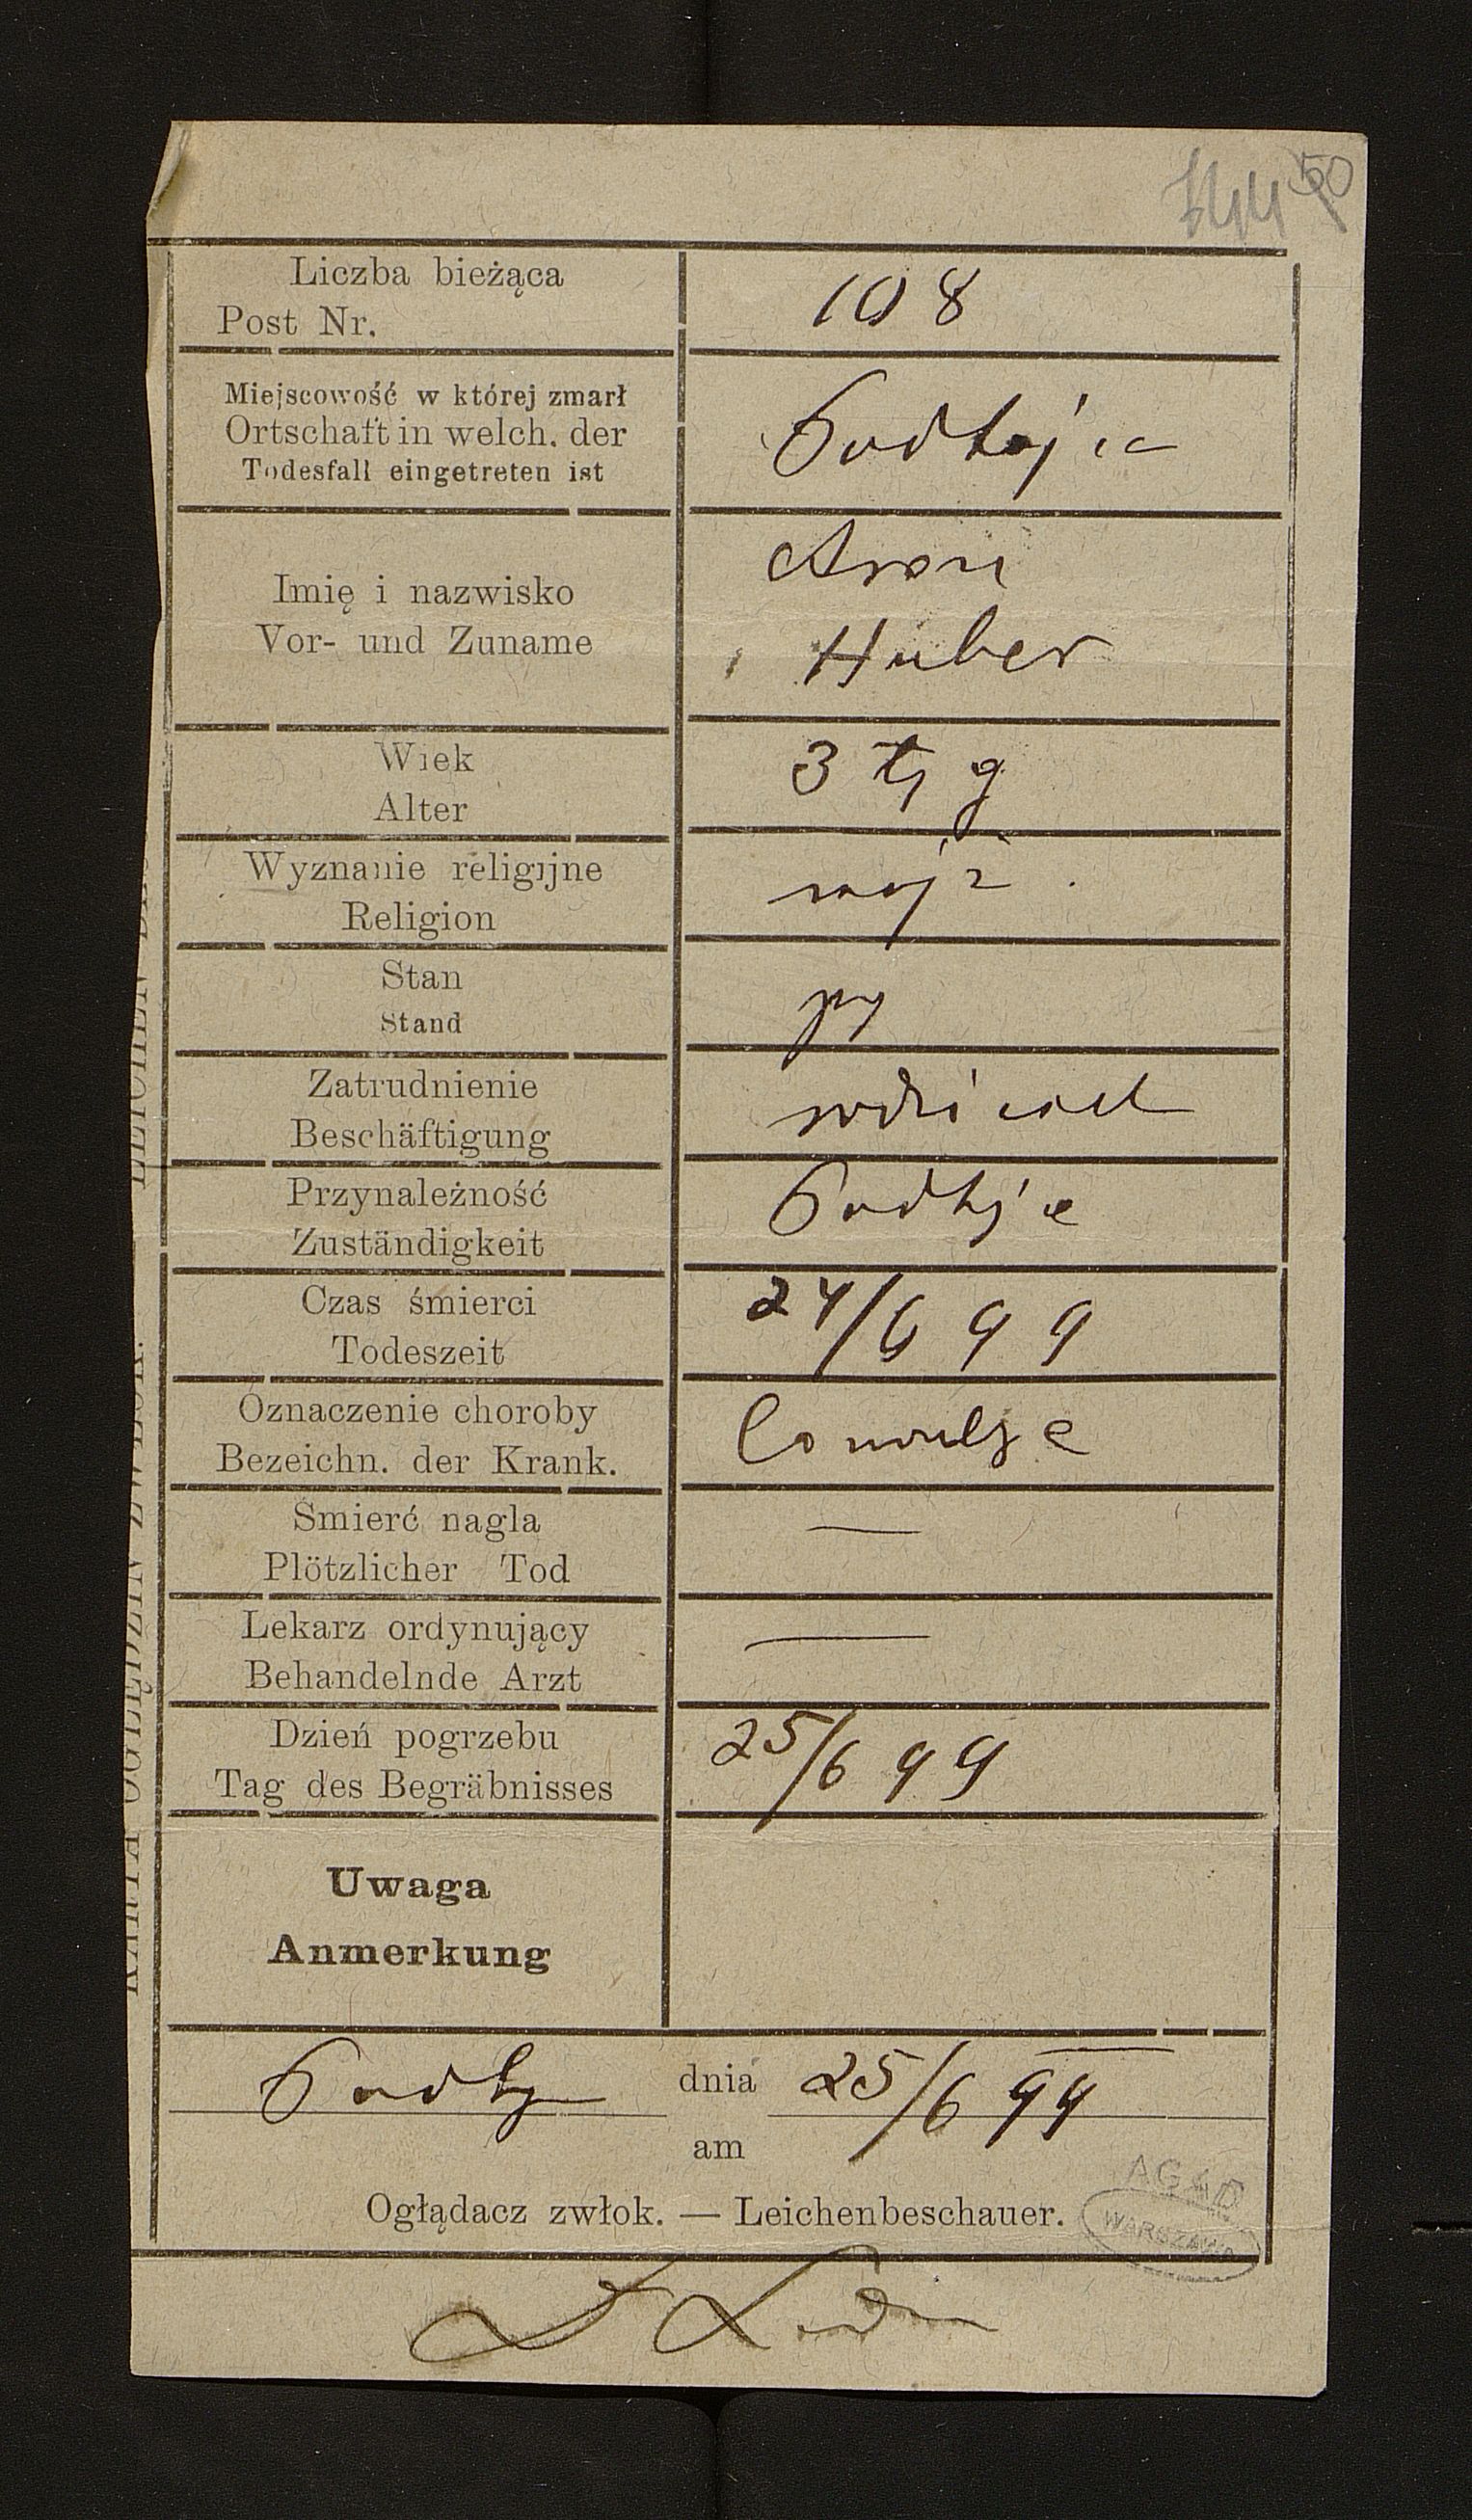 50
Liczba bieżąca
Post Nr.
108
Miejscowość w której zmarł
Ortschaft in welch. der
Todesfall eingetreten ist
Podhajce
Imię i nazwisko
Vor- und Zuname
Aron
Huber
Wiek
Alter
3 tyg
Wyznanie religijne
Religion
mojż.
Stan
Stand
Zatrudnienie
Beschäftigung
Przynależność
Zuständigkeit
Podhjce
Czas śmierci
Todeszeit
24/6 99
Oznaczenie choroby
Bezeichn. der Krank.
Convulsje
Śmierć nagła
Plötzlicher Tod
—
Lekarz ordynujący
Behandelnde Arzt
—
Dzień pogrzebu
Tag des Begräbnisses
25/6 99
Uwaga
Anmerkung
Podhj dnia 25/6 99
am
Ogłądacz zwłok. — Leichenbeschauer.
AGAD
WARSZAWA
KARTA OGLĘDZIN ZWŁOK.